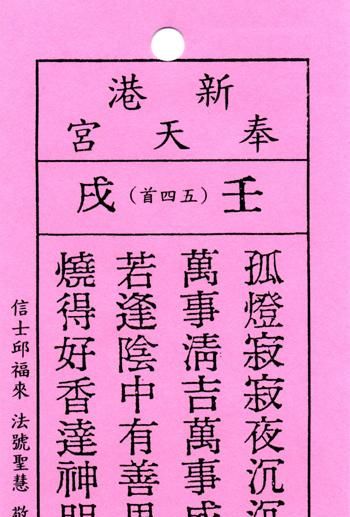 新港
奉天宮
壬（五四首）戌
孤燈寂寂夜沉沉
萬事清吉萬事成
若逢陰中有善果
燒得好香達神明
信士邱福來 法號聖慧 敬